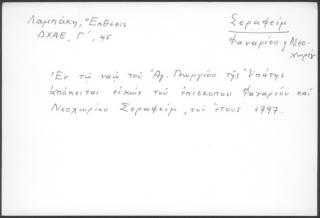 Λαμπάκη, Ἔκθεσις
ΔΧΑΕ, Γ΄, 45
Σεραφείμ
Φαναρίου κ Νεο-
χωρίου
Ἐν τῷ ναῷ τοῦ Ἁγ. Γεωργίου τῆς Ὑπάτης
ἀπόκειται εἰκὼν τοῦ ἐπισκόπου Φαναρίου καὶ
Νεοχωρίου Σεραφείμ, τοῦ ἔτους 1797.